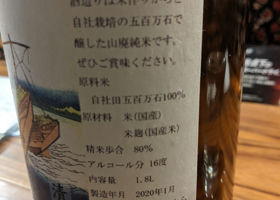 酒造りは米作りからと
自社栽培の五百万石で
醸した山廃純米です。
ぜひご賞味ください。
原料米
自社田五百万石100%
原材料 米(国産)
米麹(国産米)
精米歩合 80%
アルコール分 16度
内容量 1.8L
製造年月 2020年1月
清